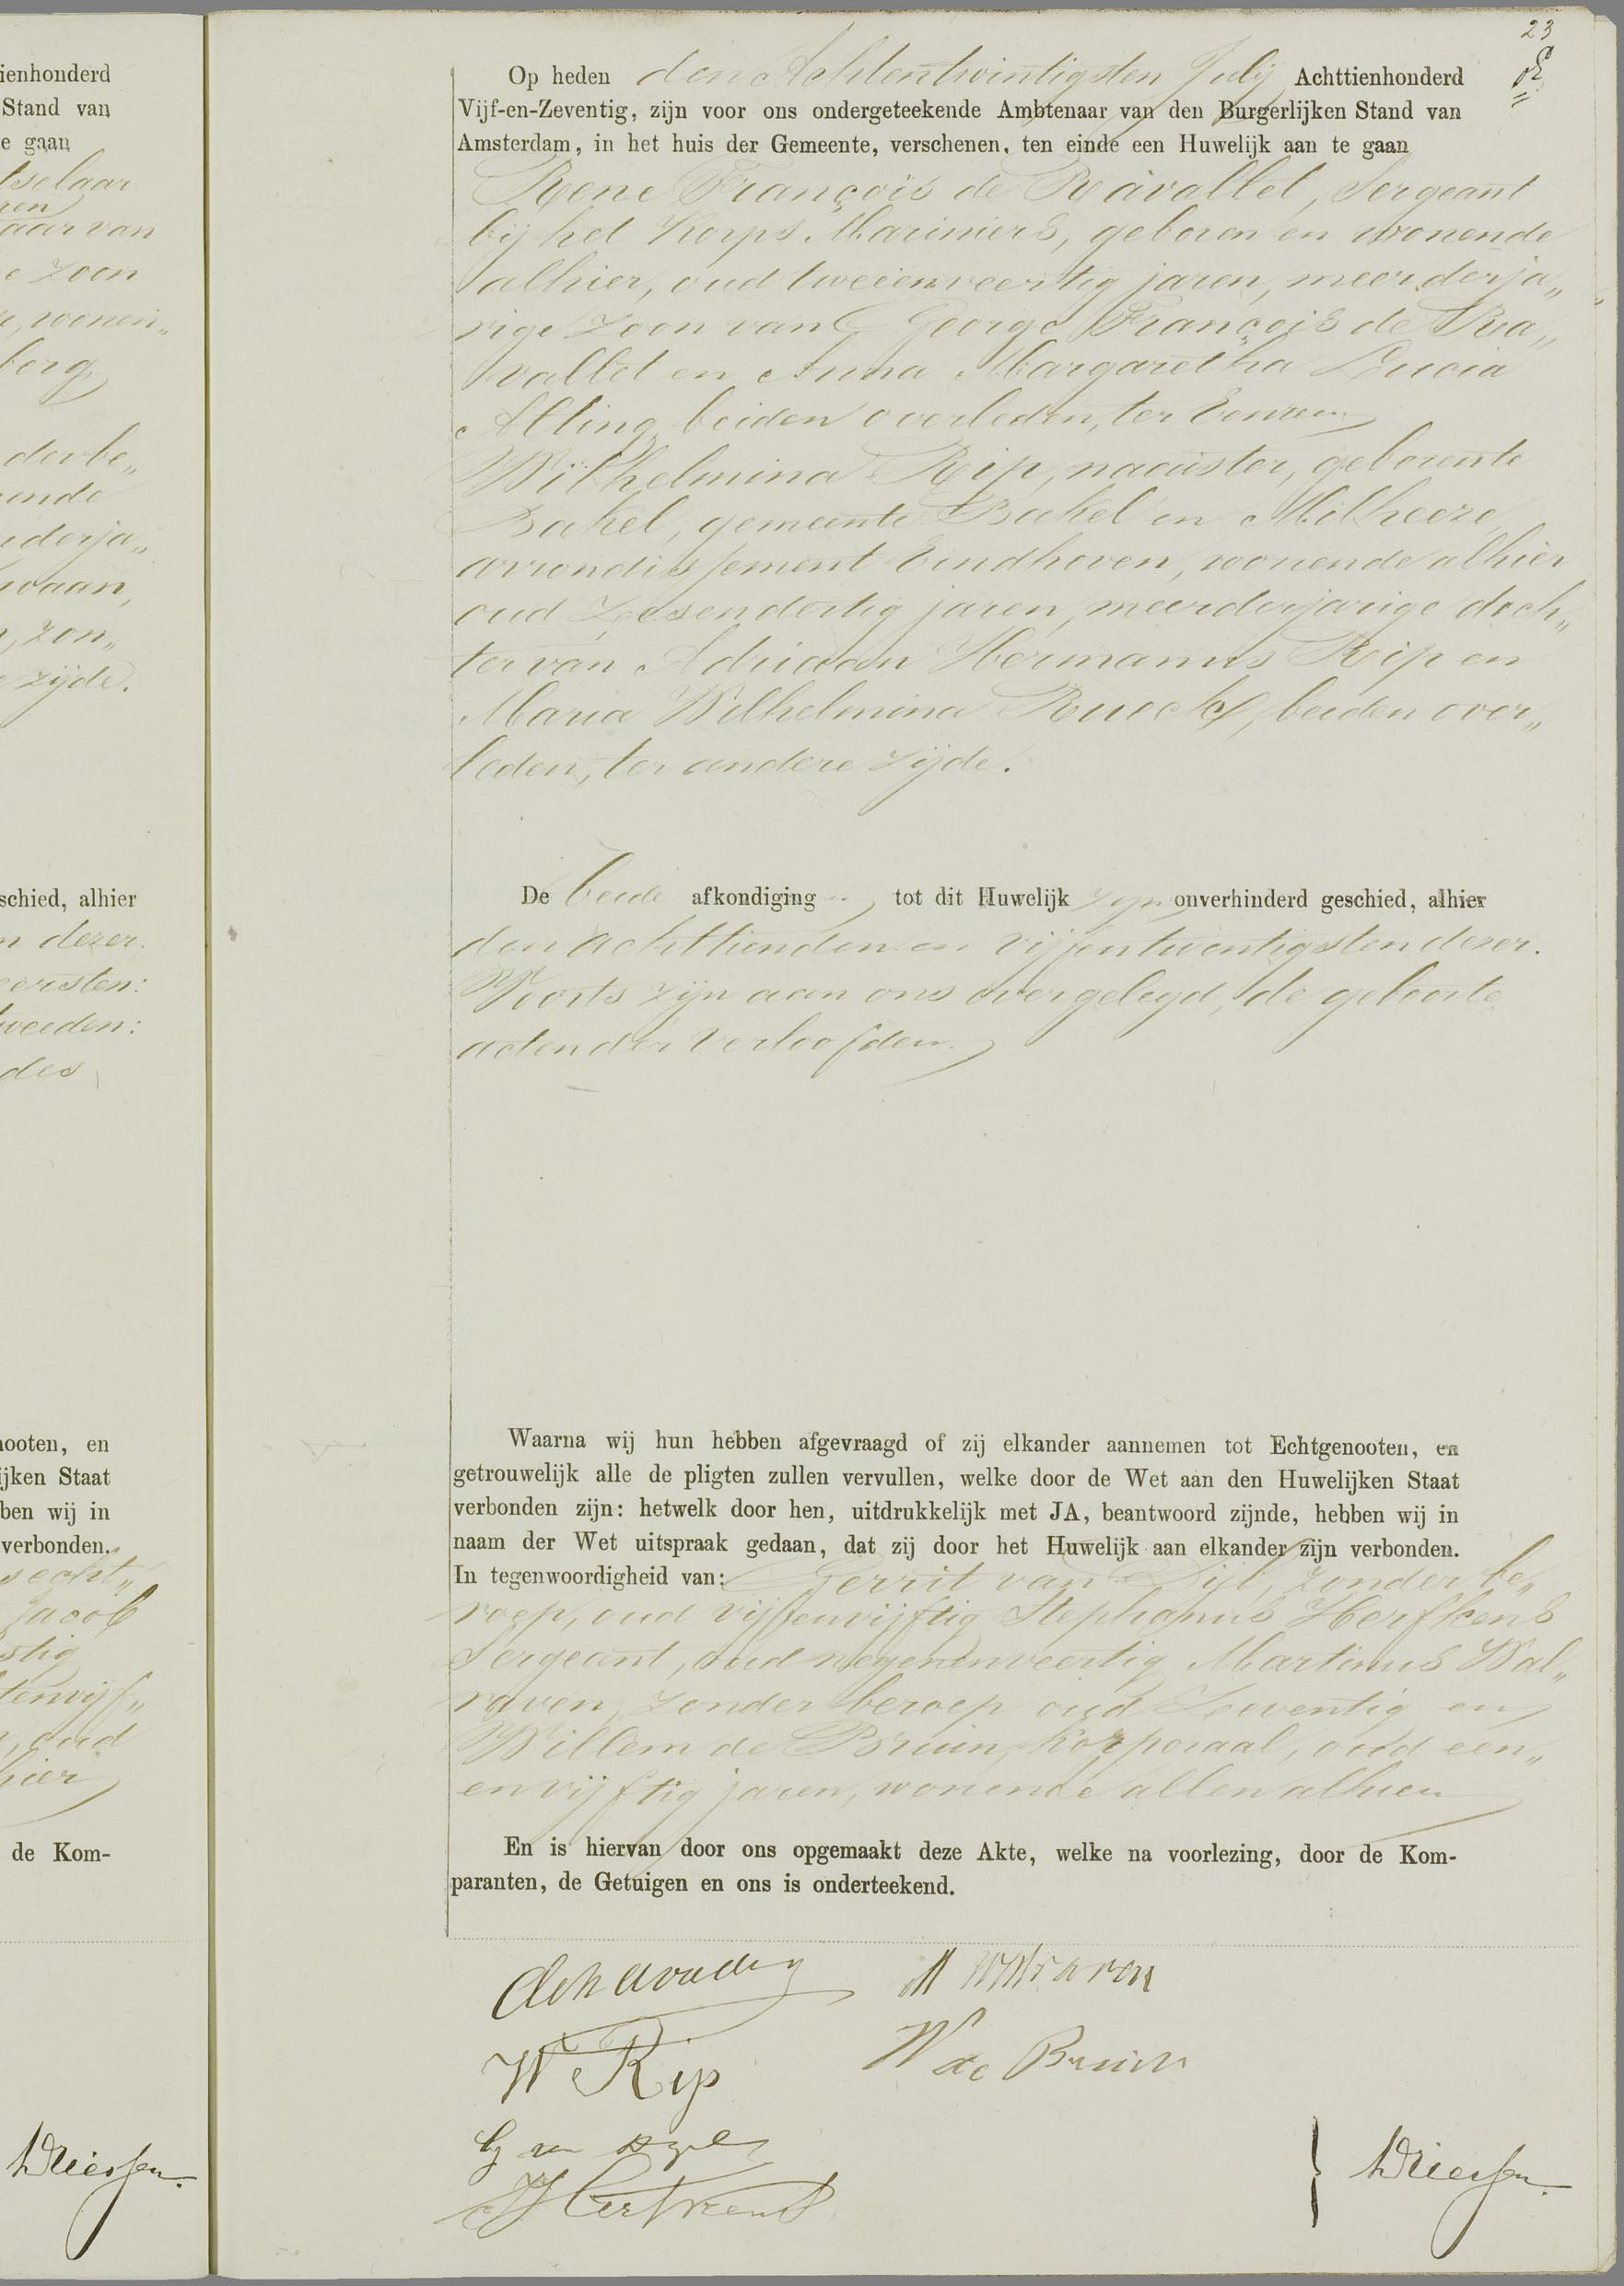 ienhonderd
Stand van
e gaan
tselaar
ren
aar van
e zoon
r, wonen„
berg
der be„
ende
derja„
waan,
, zon„
zijde.
schied, alhier
n dezer.
eersten:
tweeden:
des
nooten, en
ijken Staat
ben wij in
verbonden.
Jacob
stig
tenvijf„
, oud
hier
de Kom-
Driessen.
23
Op heden den Achtentwintigsten July Achttienhonderd
Vijf-en-Zeventig, zijn voor ons ondergeteekende Ambtenaar van den Burgerlijken Stand van
Amsterdam, in het huis der Gemeente, verschenen, ten einde een Huwelijk aan te gaan
Rene François de Ravallet, Sergeant
bij het Korps Mariniers, geboren en wonende
alhier, oud tweeënveertig jaren, meerderja„
rige zoon van George François de Ra„
vallet en Anna Margaretha Lucia
Alting, beiden overleden, ter eenre en
Wilhelmina Rip, naaister, geboren te
Bakel, gemeente Bakel en Milheeze,
arrondissement Eindhoven, wonende alhier
oud zesendertig jaren, meerderjarige doch„
ter van Adriaan Hermanus Rip en
Maria Wilhelmina Rueck, beiden over„
leden, ter andere zijde.
De beide afkondiging en tot dit Huwelijk zijn onverhinderd geschied, alhier
den achttienden en vijfentwintigsten dezer.
Voorts zijn aan ons overgelegd, de geboorte
acten der verloofden.
Waarna wij hun hebben afgevraagd of zij elkander aannemen tot Echtgenooten, en
getrouwelijk alle de pligten zullen vervullen, welke door de Wet aan den Huwelijken Staat
verbonden zijn: hetwelk door hen, uitdrukkelijk met JA, beantwoord zijnde, hebben wij in
naam der Wet uitspraak gedaan, dat zij door het Huwelijk aan elkander zijn verbonden.
In tegenwoordigheid van: Gerrit van Dijl, zonder be„
roep, oud vijfenvijftig Stephanus Herfkens
Sergeant, oud negenenveertig Martinus Wal„
raven, zonder beroep oud Zeventig en
Willem de Bruin, korporaal, oud een„
envijftig jaren, wonende allen alhier
En is hiervan door ons opgemaakt deze Akte, welke na voorlezing, door de Kom-
paranten, de Getuigen en ons is onderteekend.
M Walraven
W Rip
W de Bruin
G van Dijl
S Herfkens
Driessen.